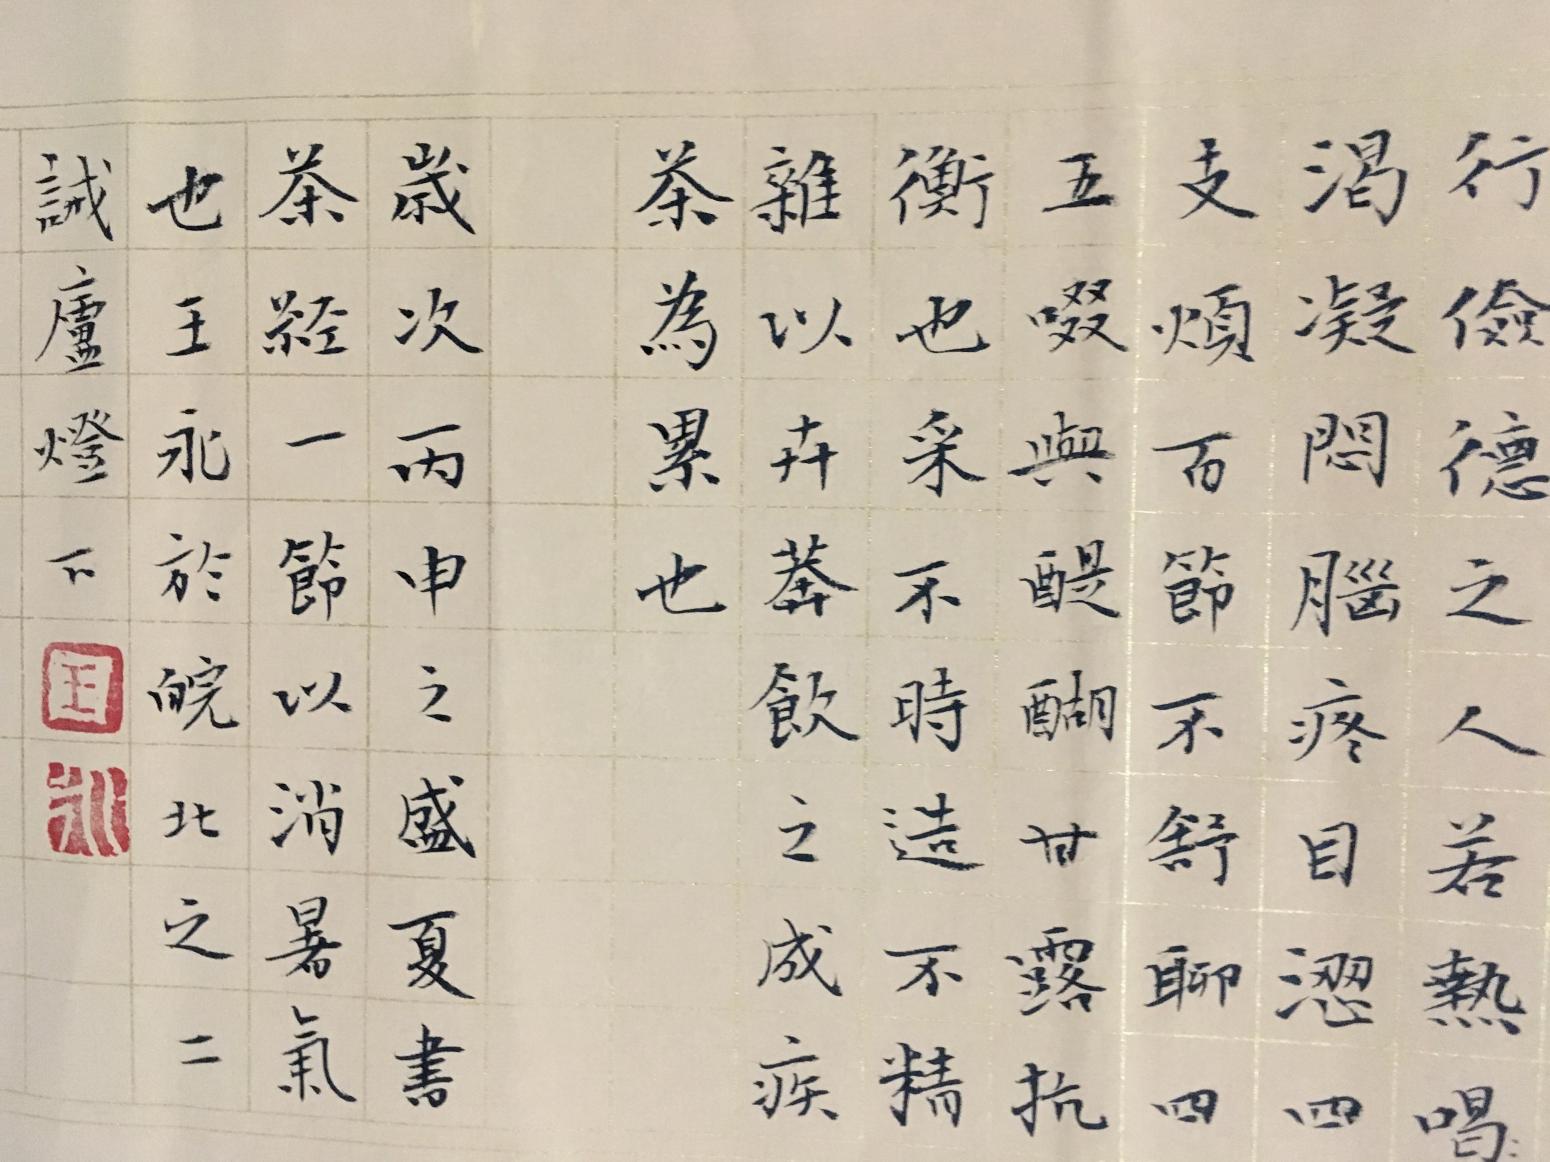 行儉德之人若熱喝
渴凝悶腦疼目澀四
支煩百節不舒聊四
五啜與醍醐甘露抗
衡也采不時造不精
雜以卉莽飲之成疾
茶為累也
歲次丙申之盛夏書
茶經一節以消暑氣
也王永於皖北之二
誠廬燈下
王
永